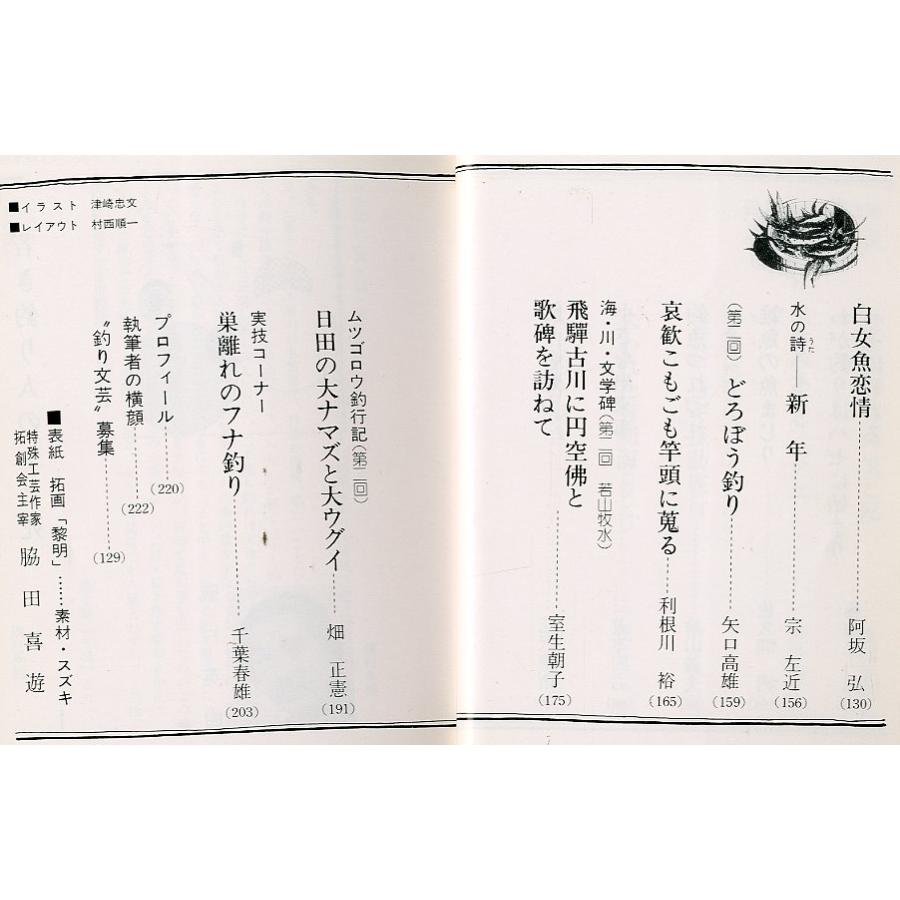 白女魚恋情……阿坂 弘 (130)
水の詩(うた)――新年……宗 左近 (156)
(第二回) どろぼう釣り……矢口高雄 (159)
哀歓こもごも竿頭に蒐る……利根川 裕 (165)
海・川・文学碑(第二回 若山牧水)
飛驒古川に円空佛と
歌碑を訪ねて……室生朝子 (175)
ムツゴロウ釣行記(第二回)
日田の大ナマズと大ウグイ……畑 正憲 (191)
実技コーナー
巣離れのフナ釣り……千葉春雄 (203)
プロフィール……(220)
執筆者の横顔……(222)
“釣り文芸”募集……(129)
■表紙 拓画「黎明」……素材・スズキ
特殊工芸作家
拓創会主宰 脇田喜遊
■イラスト 津崎忠文
■レイアウト 村西順一